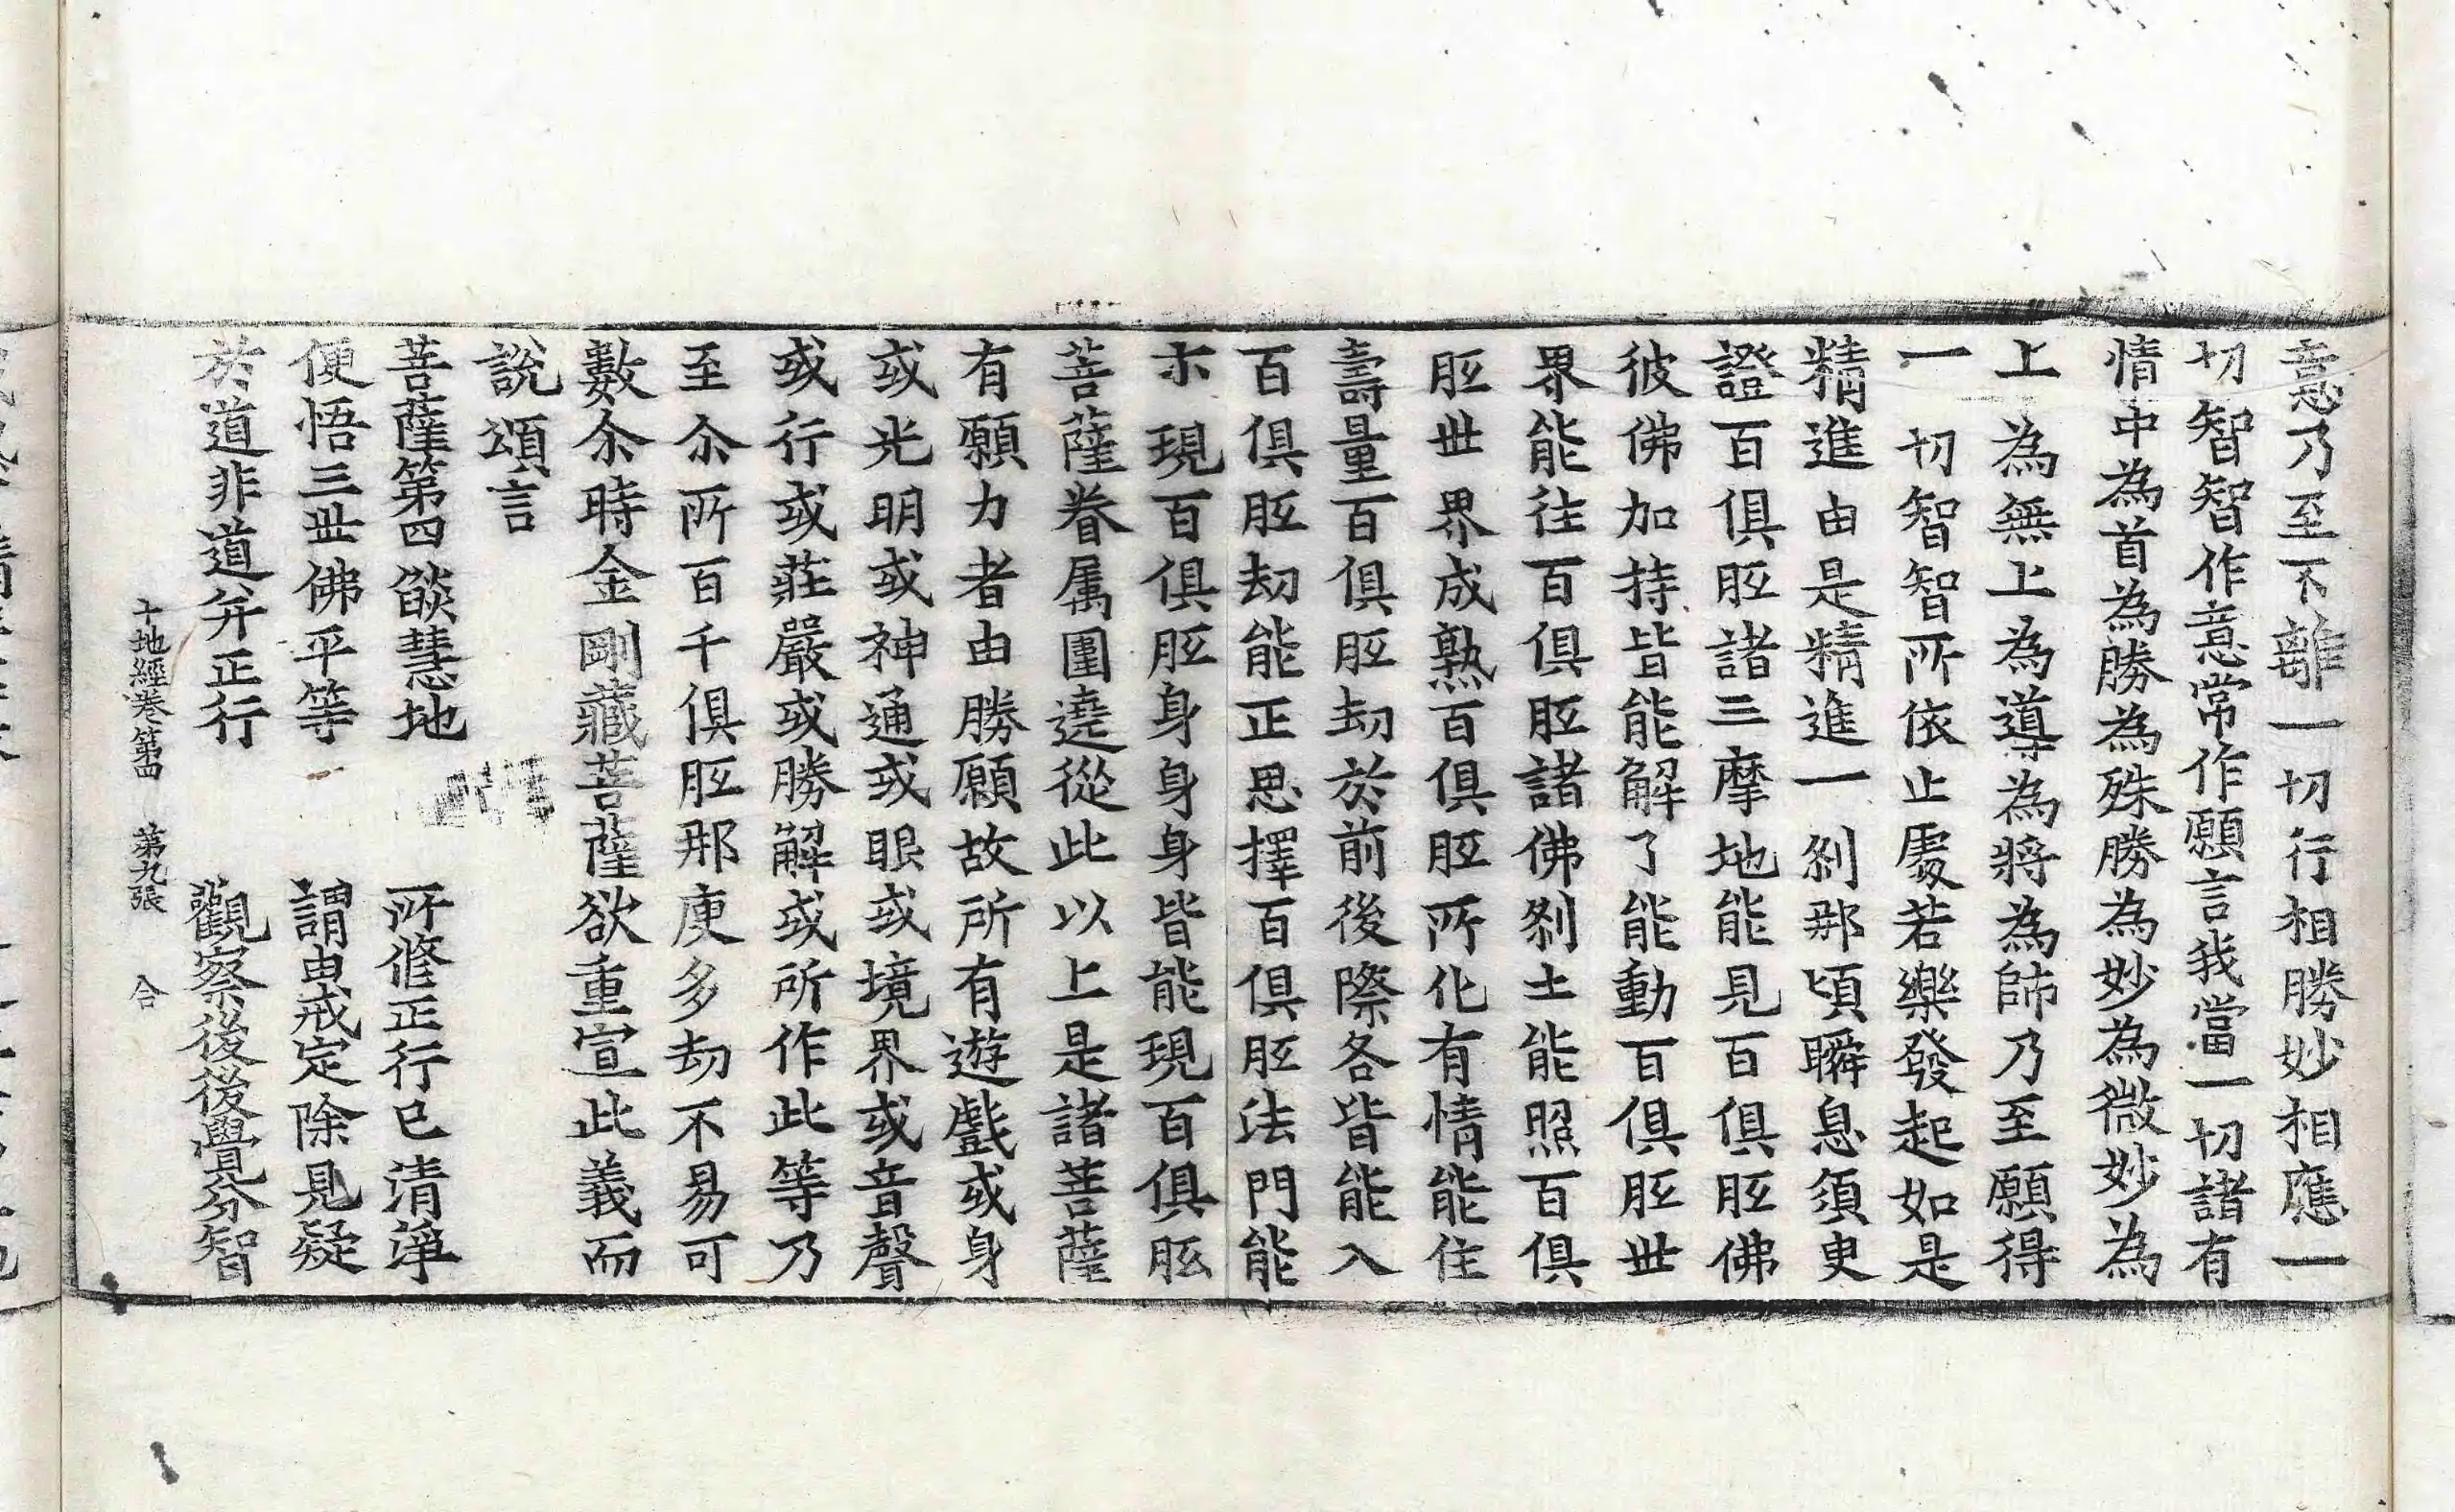 意乃至不離一切行相勝妙相應一
切智智作意常作願言我當一切諸有
情中為首為勝為殊勝為妙為微妙為
上為無上為導為將為帥乃至願得
一切智智所依止處若樂發起如是
精進由是精進一剎那頃瞬息須臾
證百俱胝諸三摩地能見百俱胝佛
彼佛加持皆能解了能動百俱胝世
界能往百俱胝諸佛剎土能照百俱
胝世界成熟百俱胝所化有情能住
壽量百俱胝劫於前後際各皆能入
百俱胝劫能正思擇百俱胝法門能
示現百俱胝身身身皆能現百俱胝
菩薩眷属圍遶從此以上是諸菩薩
有願力者由勝願故所有遊戲或身
或光明或神通或眼或境界或音聲
或行或莊嚴或勝解或所作此等乃
至尒所百千俱胝那庾多劫不易可
數尒時金剛藏菩薩欲重宣此義而
說頌言
菩薩第四燄慧地　所修正行已清淨
便悟三世佛平等　謂由戒定除見疑
於道非道并正行　觀察後後覺分智
十地經卷第四　第九張　合